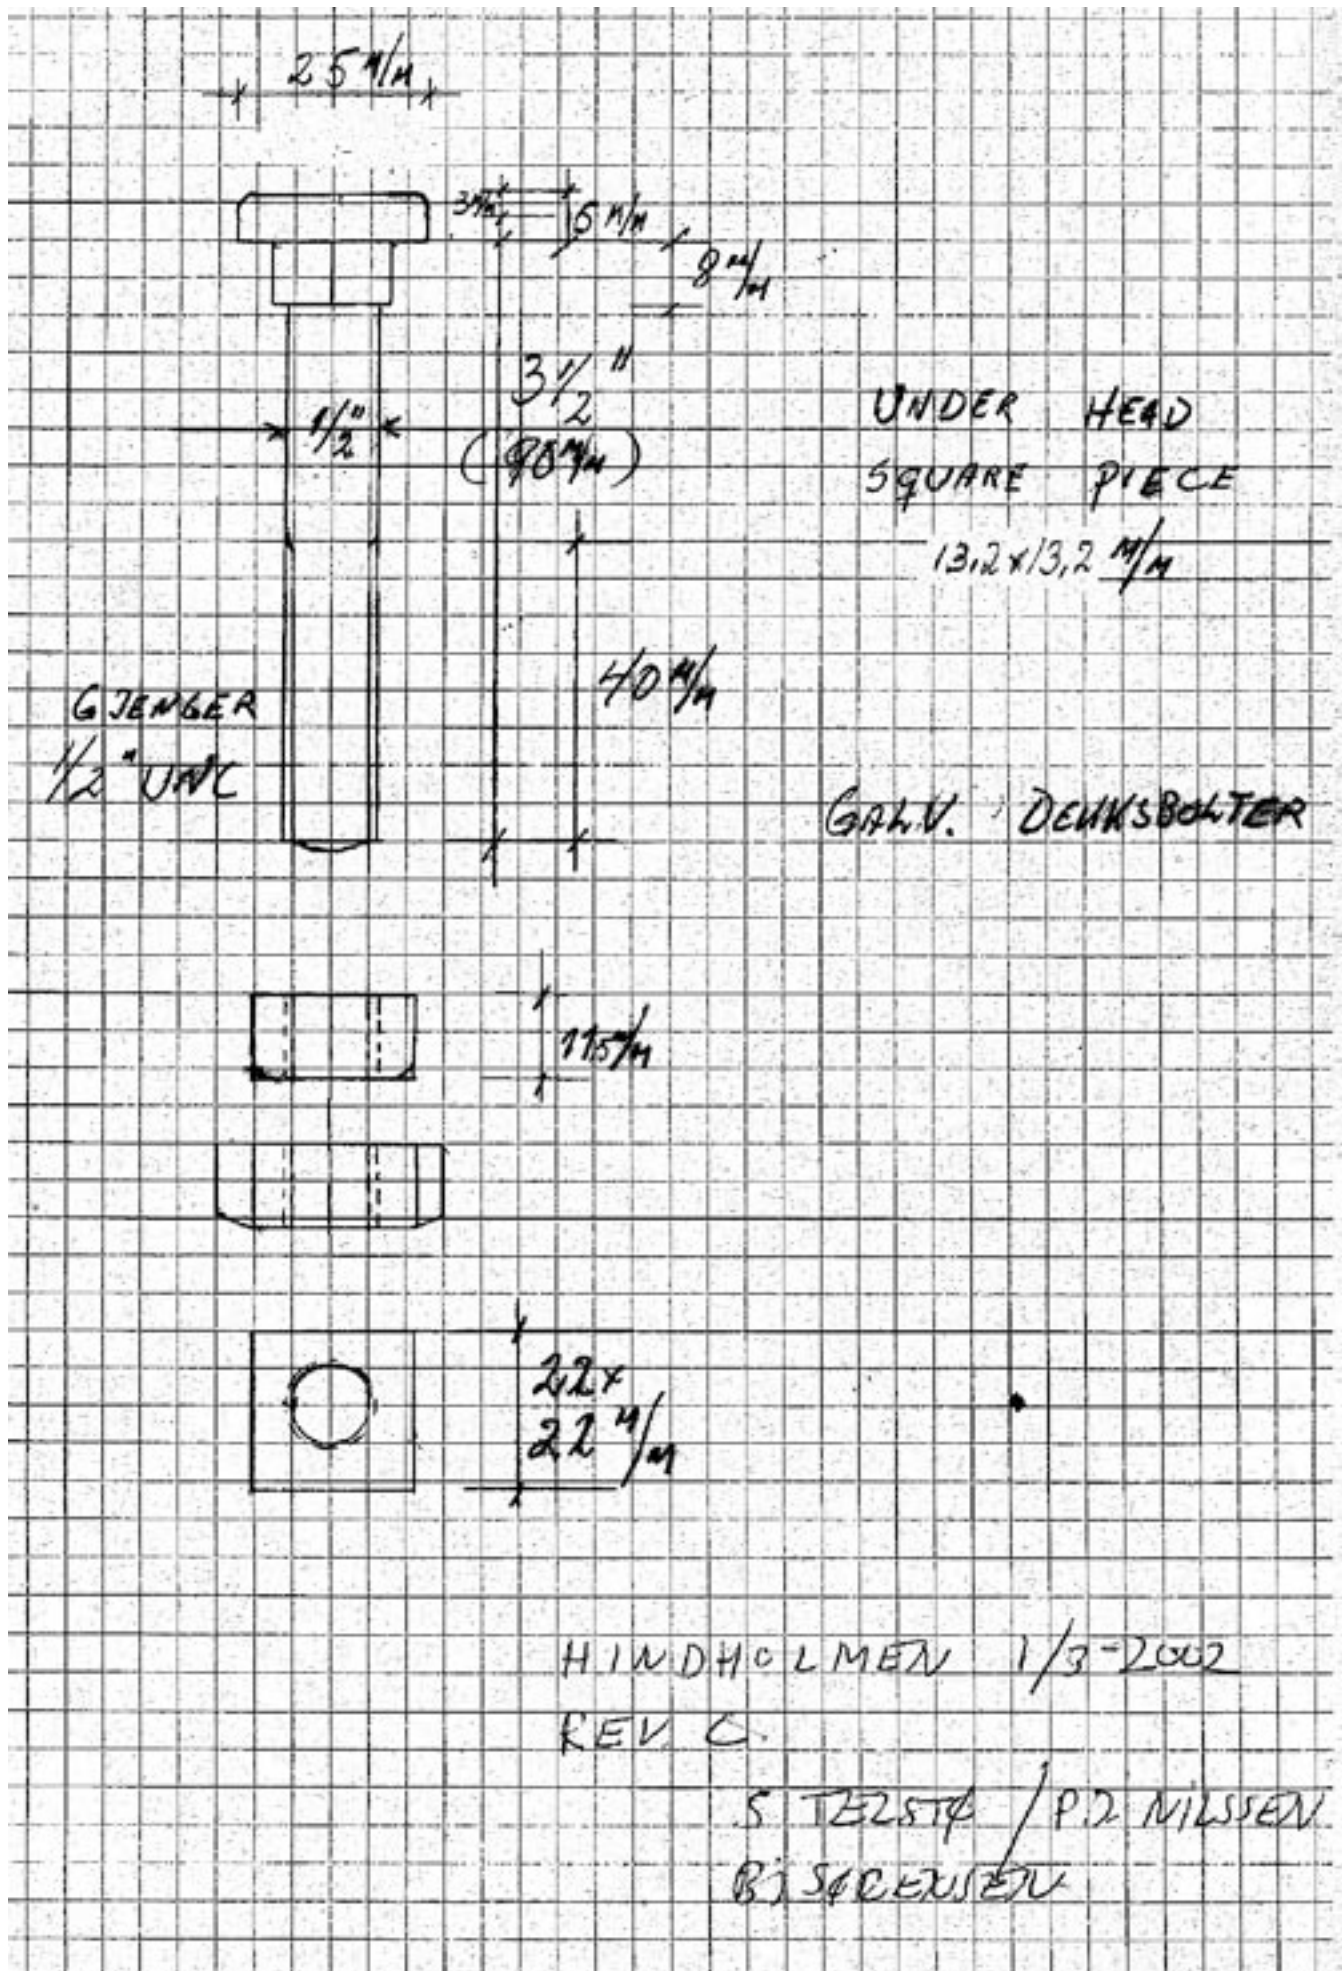 25 M/M
3 M/M
6 M/M
8 M/M
3 1/2"
(90 M/M)
1/2"
UNDER HEAD
SQUARE PIECE
13,2x13,2 M/M
40 M/M
GJENGER
1/2" UNC
GALV. DEKKSBOLTER
11,5 M/M
22x
22 M/M
HINDHOLMEN 1/3-2002
REV. C
/ P.J. NILSSEN
BJ SØRENSEN